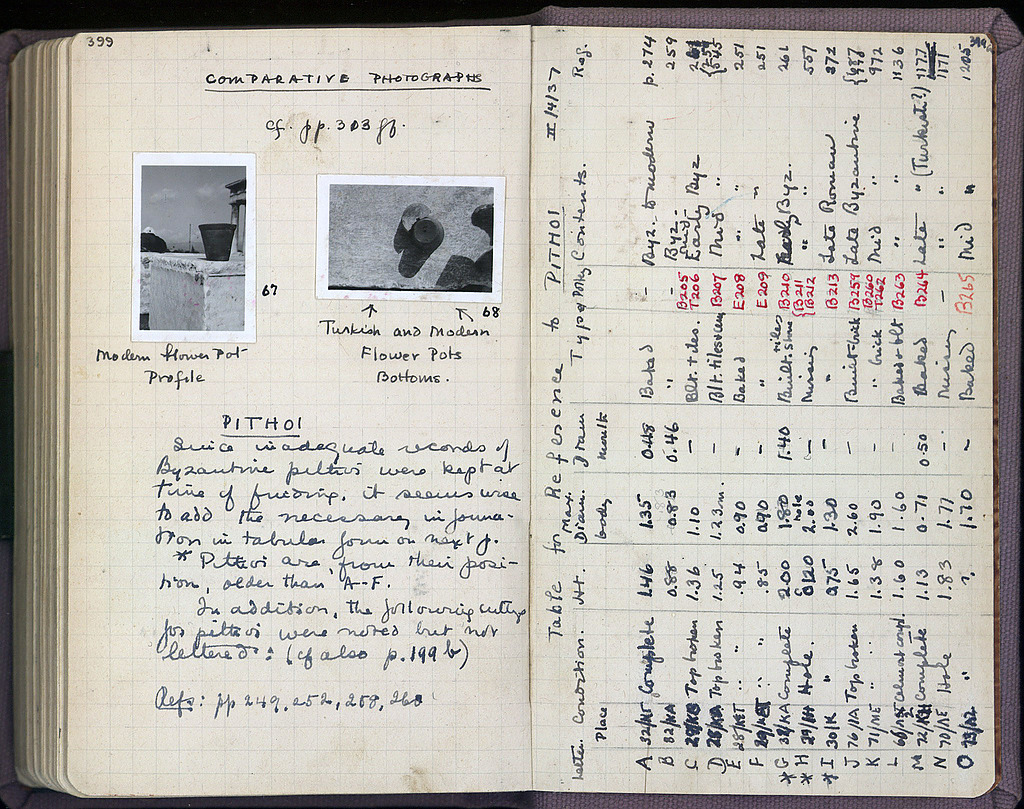 399
COMPARATIVE PHOTOGRAPHS
cf. pp. 303 ff.
67
68
Modern flower Pot
Profile
Turkish and Modern
Flower Pots
Bottoms.
PITHOI
Since inadequate records of
Byzantine pithoi were kept at
time of finding, it seems wise
to add the necessary informa-
tion in tabular form on next p.
* Pithoi are, from their posi-
tion, older than A-F.
In addition, the following cuttings
for pithoi were noted but not
lettered: (cf also p. 199 b)
Refs: pp 249, 252, 258, 260
Table for Reference to PITHOI III/4/37
Letter. Place Condition. Ht. Max. Diam. body Diam mouth Type Pottery Contents. Ref.
A Complete 1.46 1.35 0.48 Baked – Byz. to modern p. 274
B 32/KA " 0.88 0.83 0.46 " – Byz. 259
C Top broken 1.36 1.10 – Blt. tiles. B205 T206 Early Byz
D Top broken 1.25 1.23 m. – Blt. tiles B207 "
E " " .94 0.90 – Baked E208 " 251
F " " .85 0.90 – " E209 Late " 251
*G Complete 2.00 1.80 1.40 Built. tiles B210 Byz. 261
*H Hole 2.00 – Missing B211 B212 " 557
*I 30/K " 0.75 1.30 – " B213 Late Roman 872
J 76/NA Top broken 1.65 2.60 – Built brick B259 Late Byzantine
K 71/NE " " 1.38 1.90 – " brick B260 T262 Mid " 972
L 1.60 1.60 – Baked + blt B263 " " 1136
M Complete 1.13 0.71 0.50 Baked B264 Late " (Turkish?) 1177
N 70/NE Hole 1.83 1.77 – Missing – " " 1171
O " ? 1.70 – Baked B265 Mid " 1205